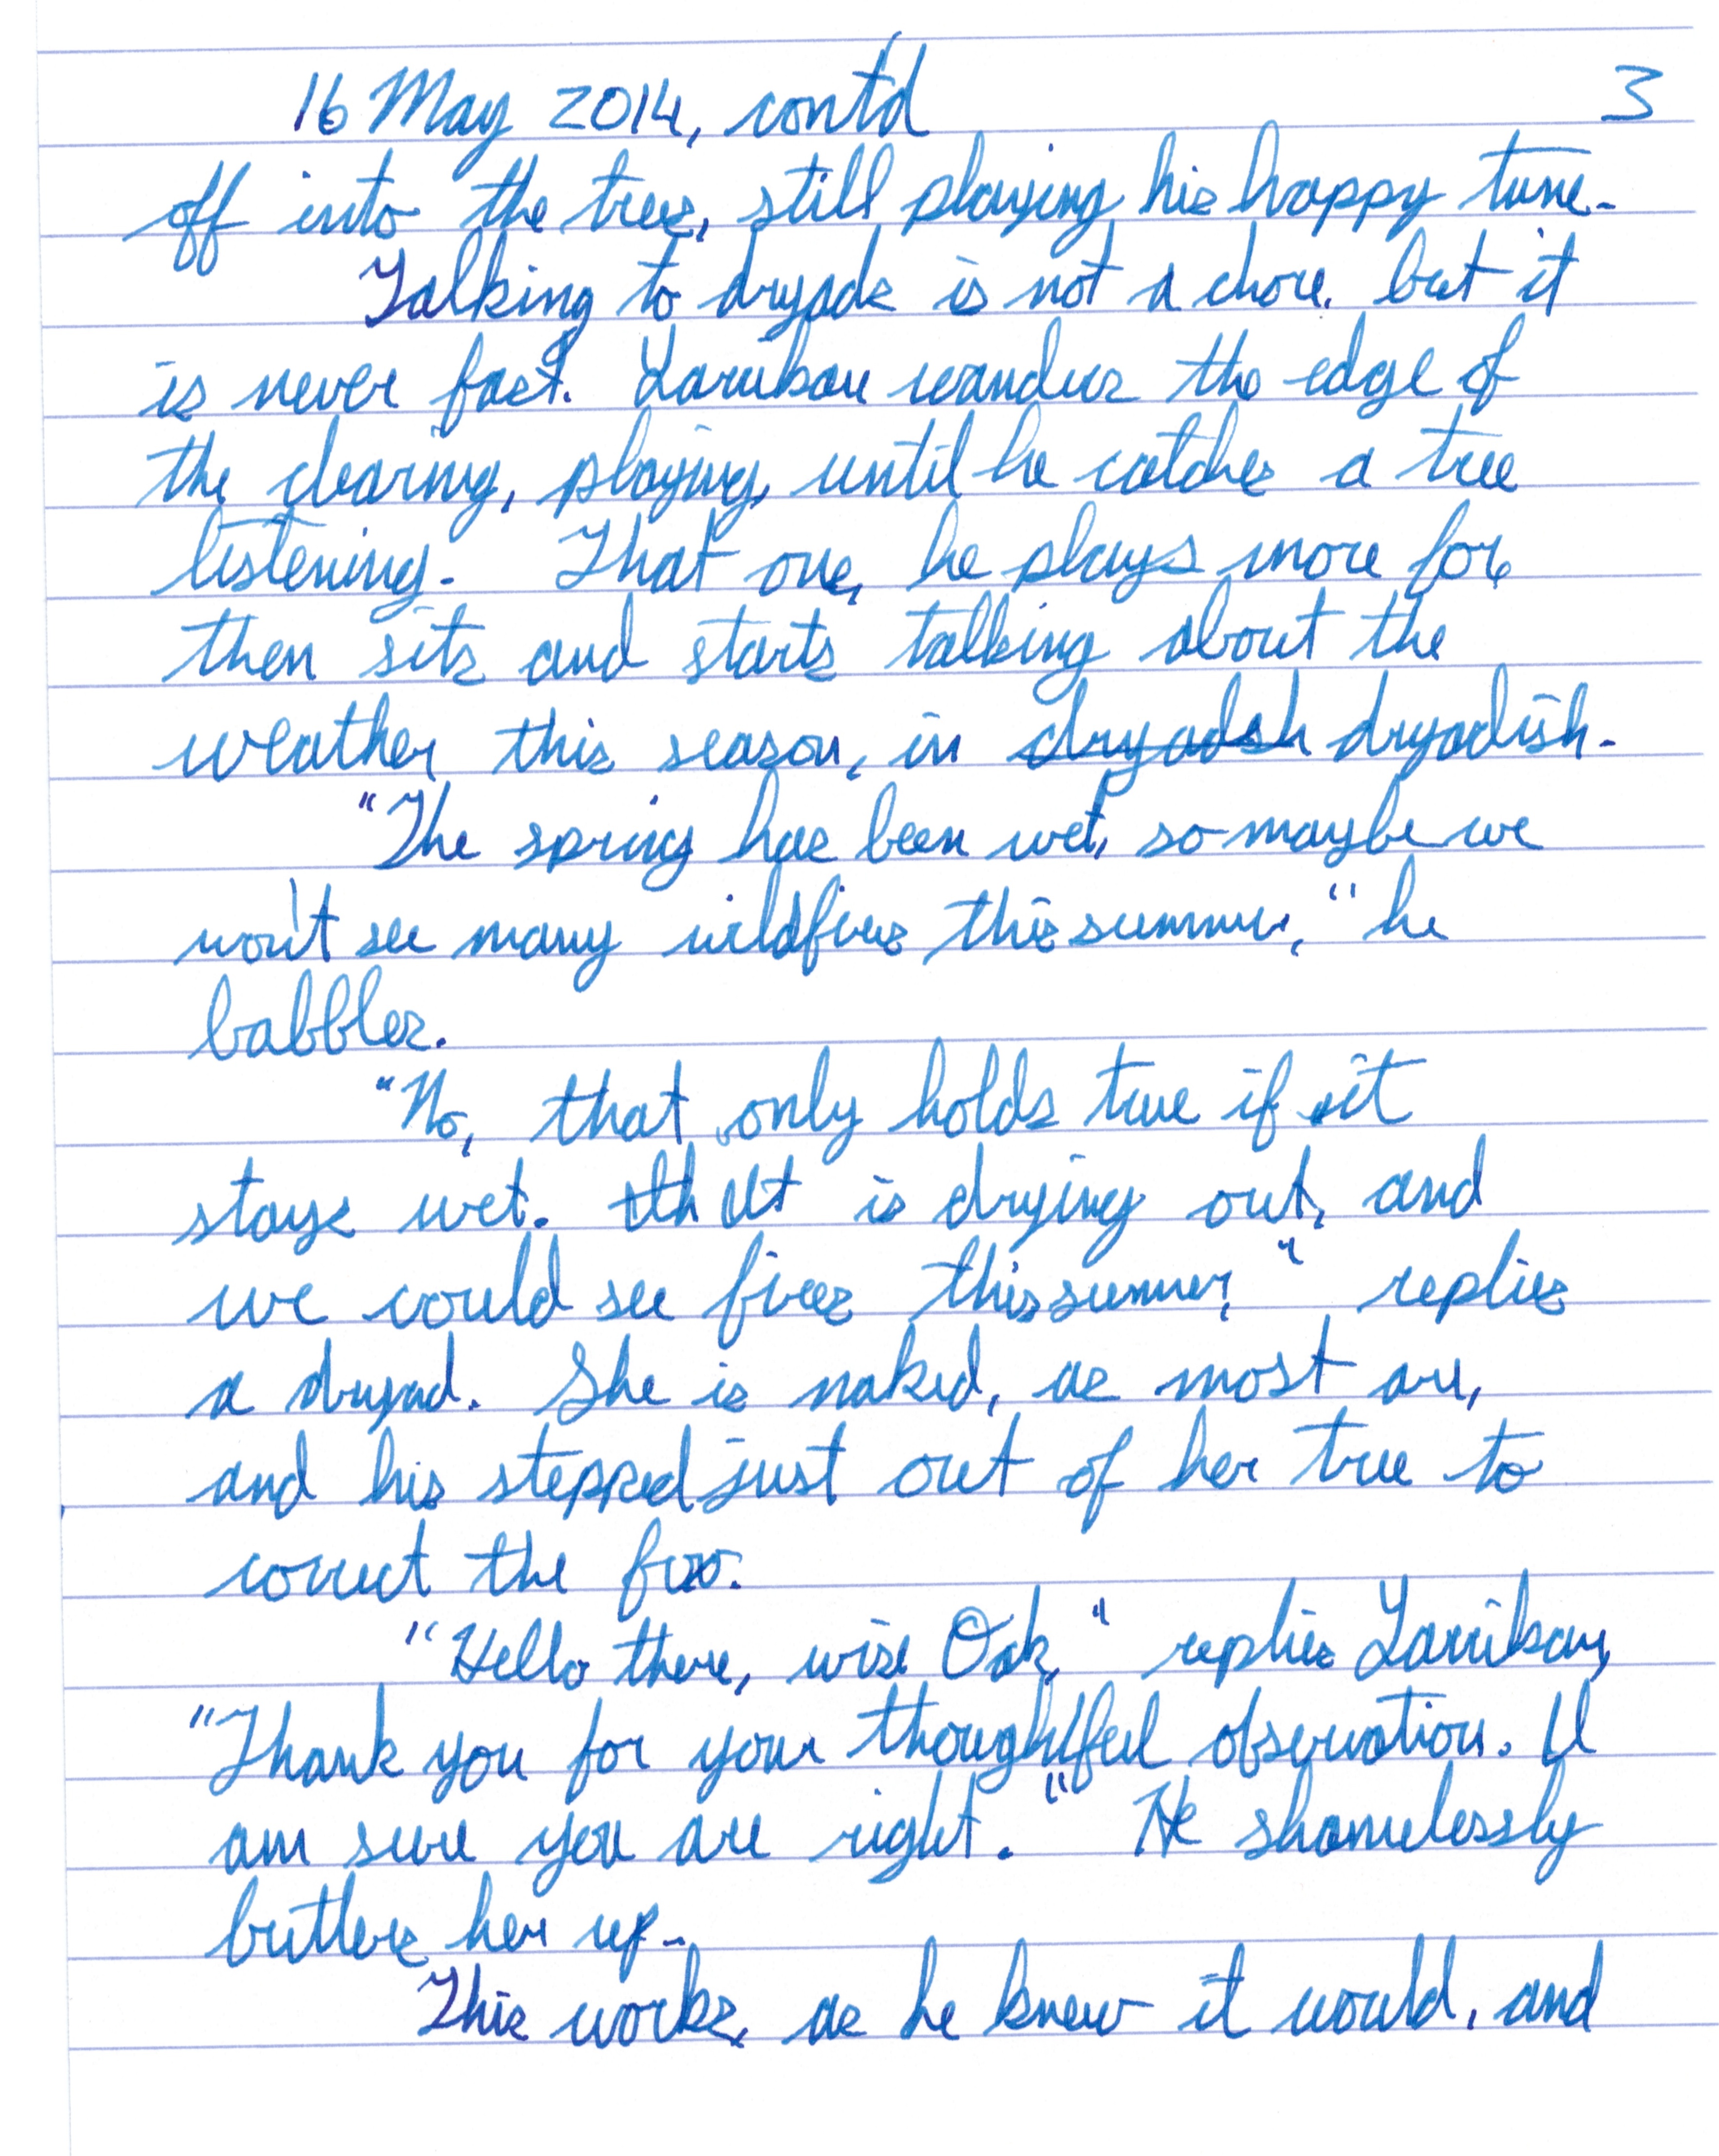 16 May 2014, cont'd 3
off into the trees, still playing his happy tune.
Talking to dryads is not a chore, but it
is never fast. Larrikau wanders the edge of
the clearing, playing, until he catches a tree
listening. That one, he plays more for,
then sits and starts talking about the
weather this season, in dryadsh dryadish.
"The spring has been wet, so maybe we
won't see many wildfires this summer," he
babbles.
"No, that only holds true if it
stays wet. th It is drying out, and
we could see fires this summer," replies
a dryad. She is naked, as most are,
and his stepped just out of her tree to
correct the fox.
"Hello there, wise Oak," replies Larrikau,
"Thank you for your thoughtful observation. I
am sure you are right." He shamelessly
butters her up.
This works, as he knew it would, and